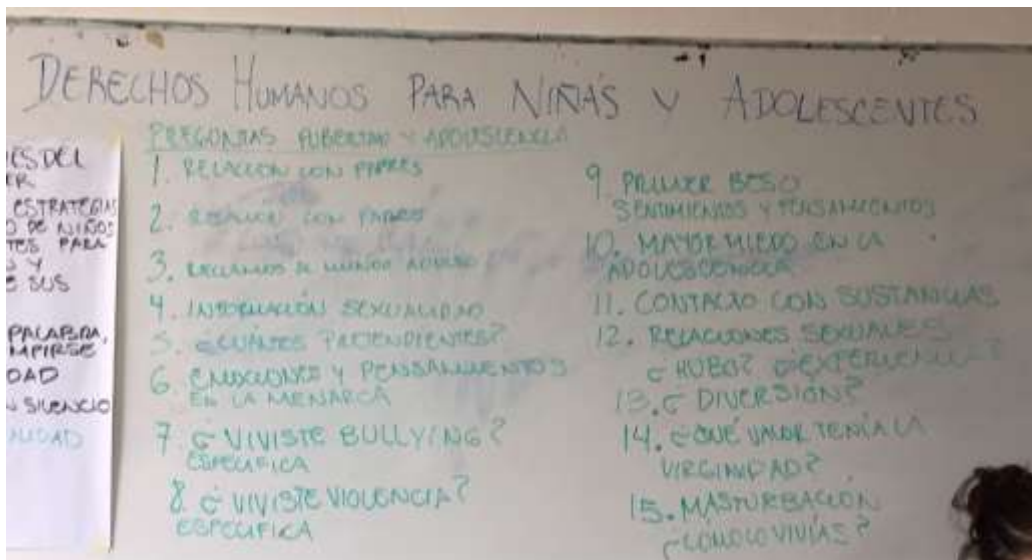 DERECHOS HUMANOS PARA NIÑAS Y ADOLESCENTES
ES DEL
ER
ESTRATEGIAS
O DE NIÑOS
TES PARA
Y
E SUS
PALABRA,
MPIRSE
DAD
N SILENCIO
ALIDAD
PREGUNTAS PUBERTAD Y ADOLESCENCIA
1. RELACIÓN CON PARES
2. RELACIÓN CON PADRES
3. RECLAMOS AL MUNDO ADULTO
4. INFORMACIÓN SEXUALIDAD
5. ¿CUÁNTES PRETENDIENTES?
6. EMOCIONES Y PENSAMIENTOS
EN LA MENARCA
7. ¿VIVISTE BULLYING?
ESPECIFICA
8. ¿VIVISTE VIOLENCIA?
ESPECIFICA
9. PRIMER BESO
SENTIMIENTOS Y PENSAMIENTOS
10. MAYOR MIEDO EN LA
ADOLESCENCIA
11. CONTACTO CON SUSTANCIAS
12. RELACIONES SEXUALES
¿HUBO? ¿EXPERIENCIA?
13. ¿DIVERSIÓN?
14. ¿QUÉ VALOR TENÍA LA
VIRGINIDAD?
15. MASTURBACIÓN
¿COMO LO VIVÍAS?